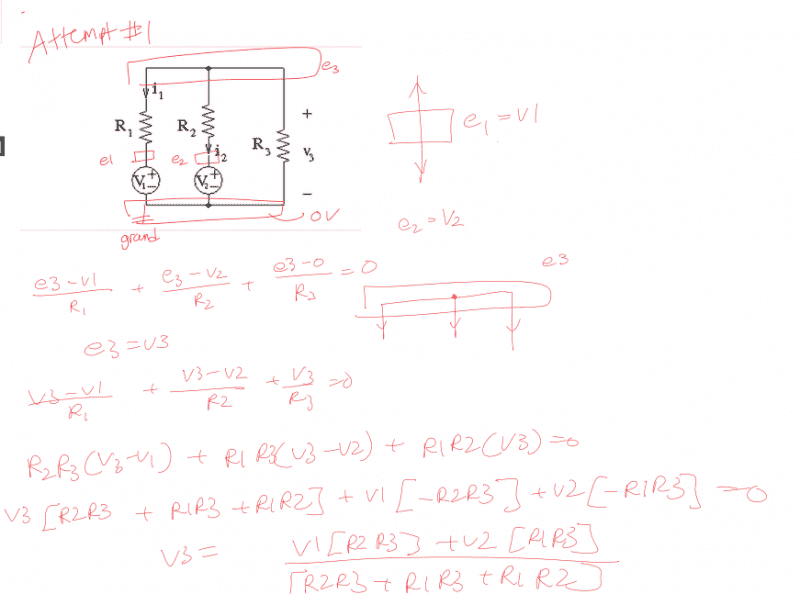 Attempt #1
e3
i1
R1
R2
i2
R3
+
v3
−
e1
e2
V1 + −
V2 + −
0V
grand
e1 = V1
e2 = V2
(e3 − V1)/R1 + (e3 − V2)/R2 + (e3 − 0)/R3 = 0
e3
e3 = V3
(V3 − V1)/R1 + (V3 − V2)/R2 + V3/R3 = 0
R2R3(V3 − V1) + R1R3(V3 − V2) + R1R2(V3) = 0
V3 [R2R3 + R1R3 + R1R2] + V1 [−R2R3] + V2 [−R1R3] = 0
V3 = (V1[R2R3] + V2[R1R3])/[R2R3 + R1R3 + R1R2]